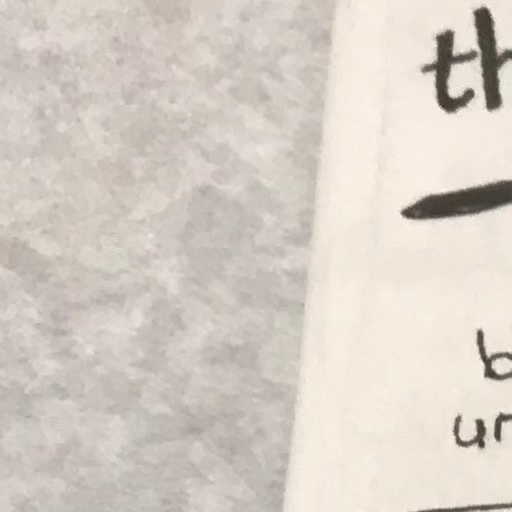 th
b
ur